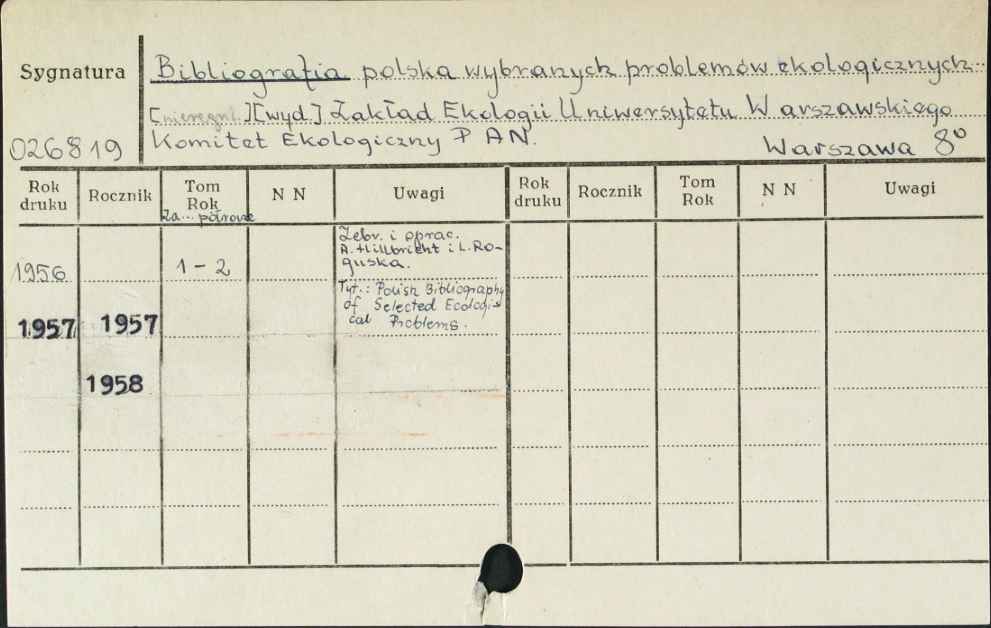 Sygnatura
Bibliografia polska wybranych problemów ekologicznych
[nieregul.][wyd.] Zakład Ekologii Uniwersytetu Warszawskiego
026819
Komitet Ekologiczny PAN.
Warszawa 8°
Rok druku Rocznik Tom Rok N N Uwagi Rok druku Rocznik Tom Rok N N Uwagi
Za... półrocze
1956 1-2 Zebr. i oprac.
A. Hillbricht i L. Ro-
guska.
Tyt.: Polish Bibliography
of Selected Ecologi-
cal Problems.
1957 1957
1958